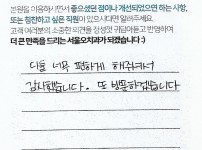 본원을 이용하시면서 좋으셨던 점이나 개선되었으면 하는 사항,
또는 칭찬하고 싶은 직원이 있으시다면 알려주세요.
고객 여러분의 소중한 의견을 항상 귀담아듣고 반영하여
더 큰 만족을 드리는 서울오치과가 되겠습니다 :)
다들 너무 편하게 해주셔서
감사했습니다. 또 방문하겠습니다